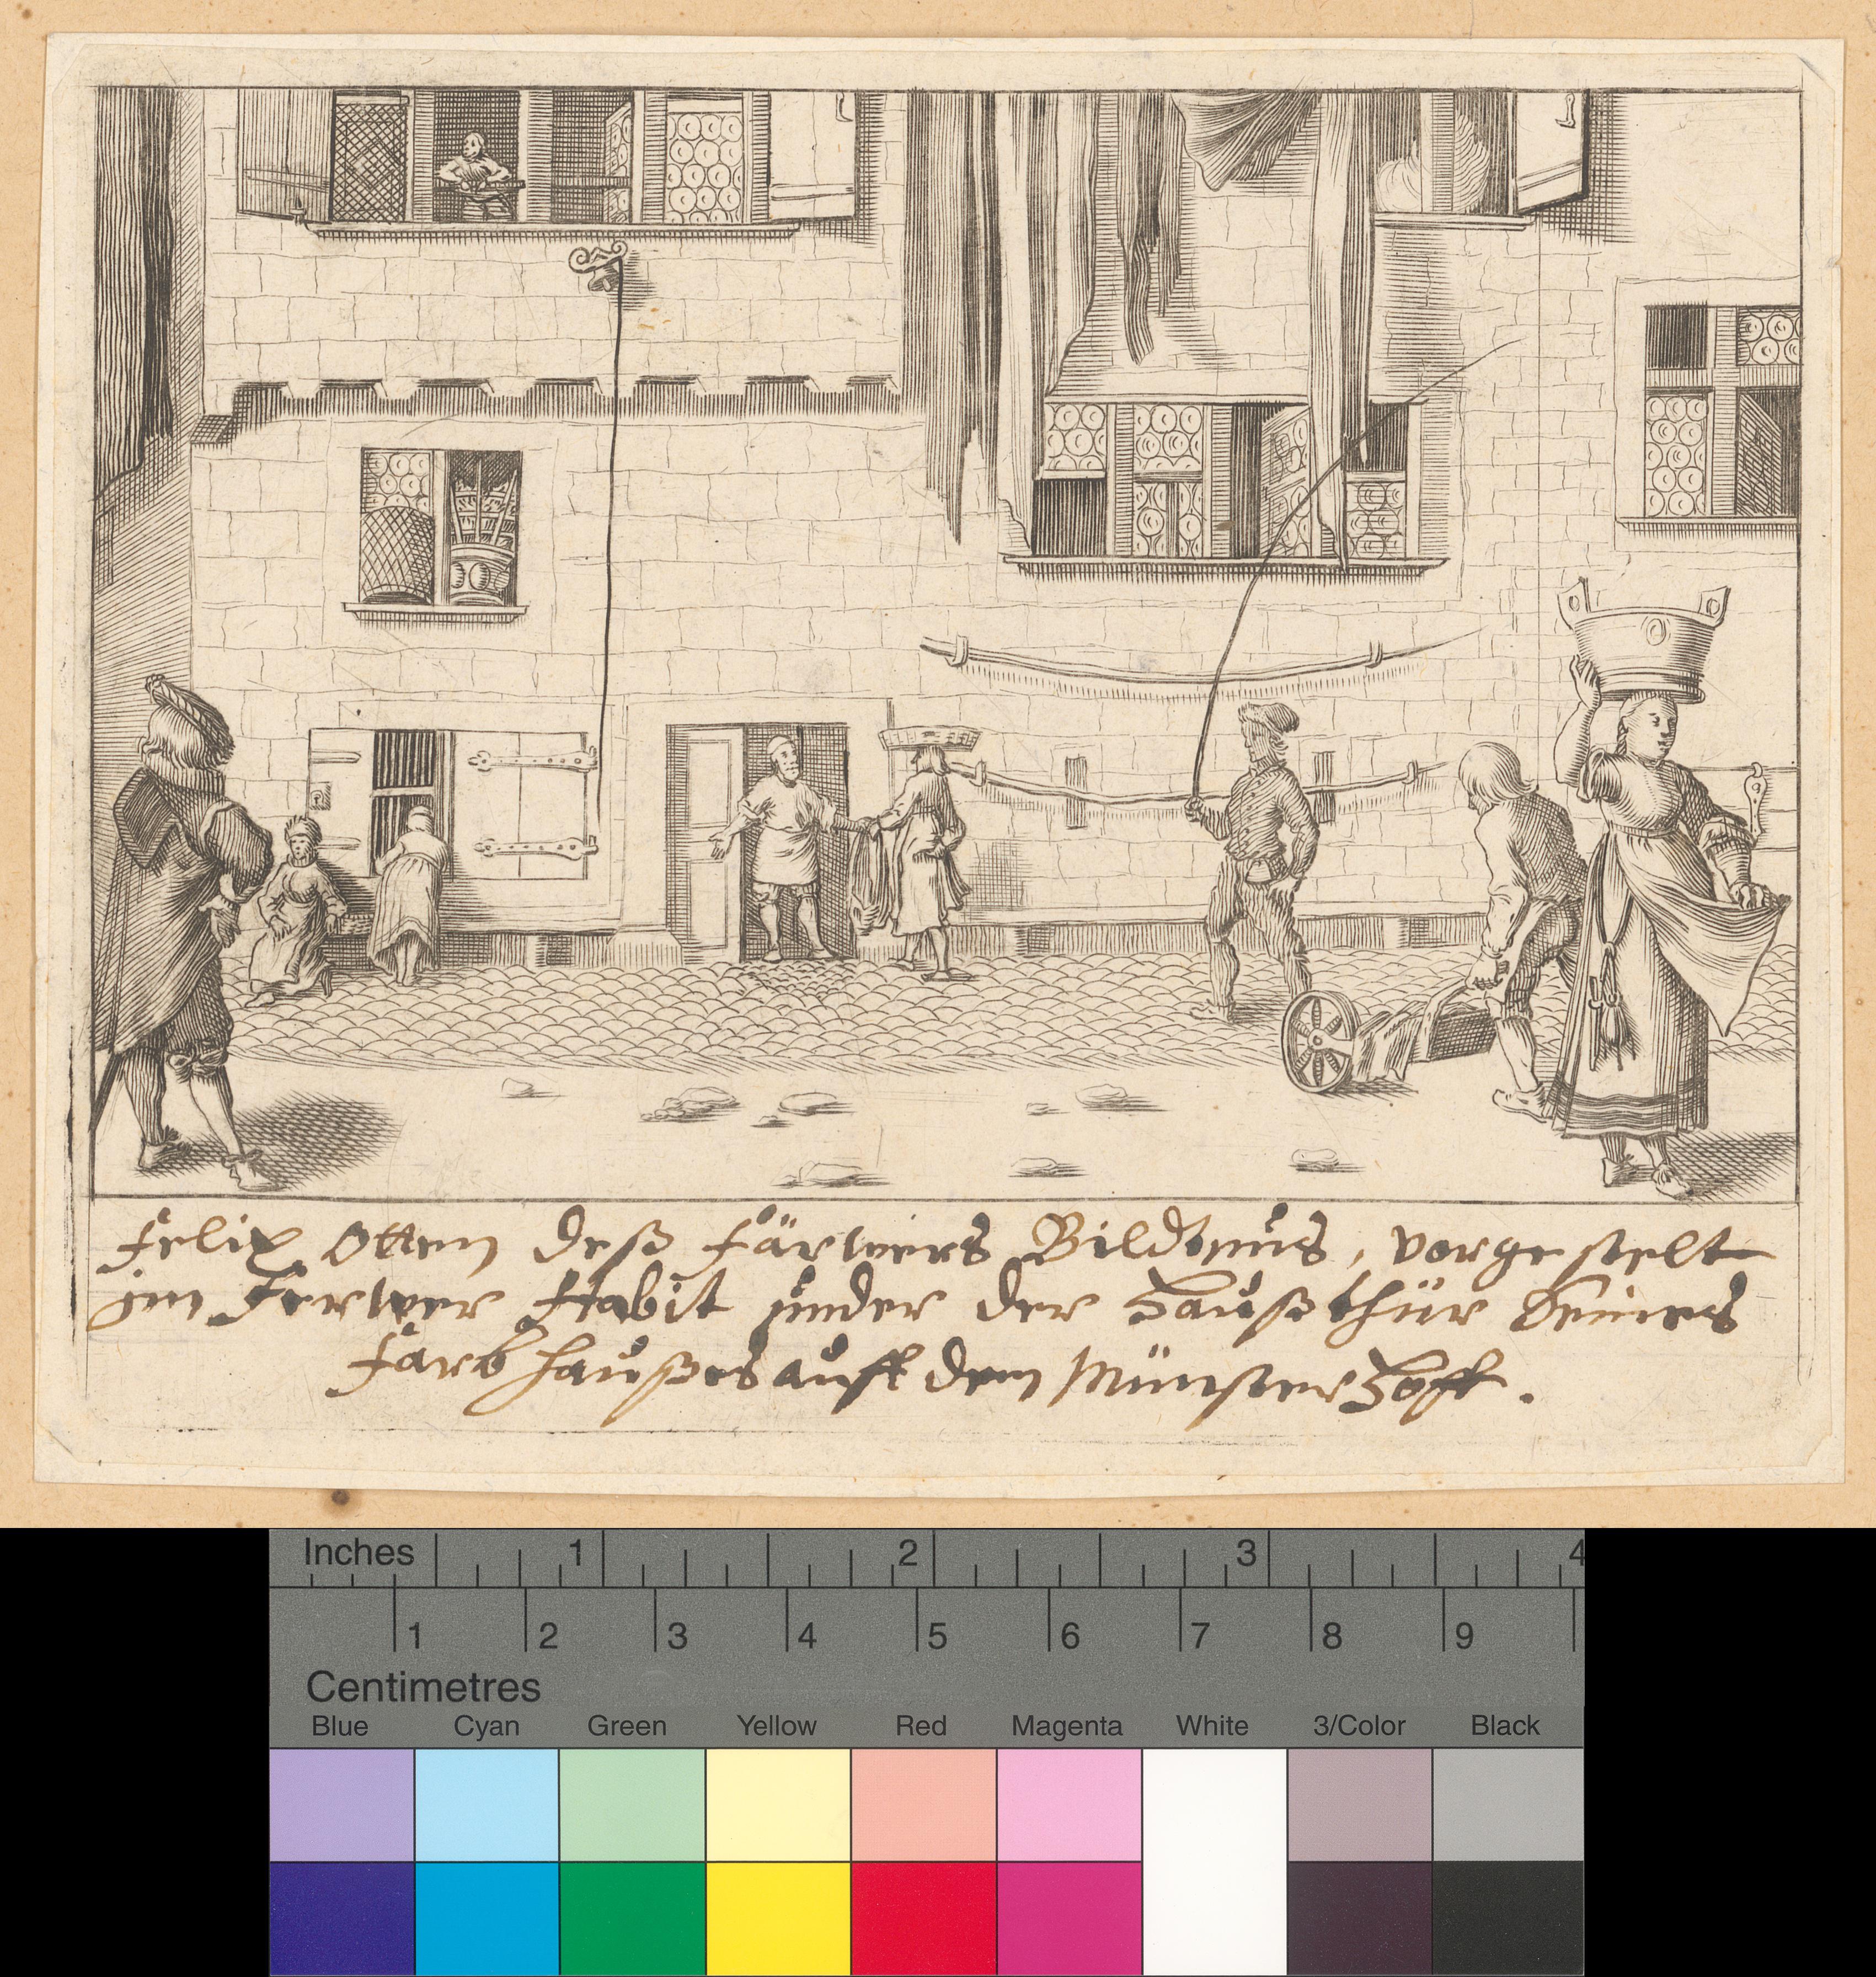 Felix Otten deß Färwers Bildtnus, vorgestelt
im Ferwer Habit under der Haußthür seines
Farbhaußes auff dem Münster Hoff.
Inches 1 2 3 4
1 2 3 4 5 6 7 8 9
Centimetres
Blue Cyan Green Yellow Red Magenta White 3/Color Black